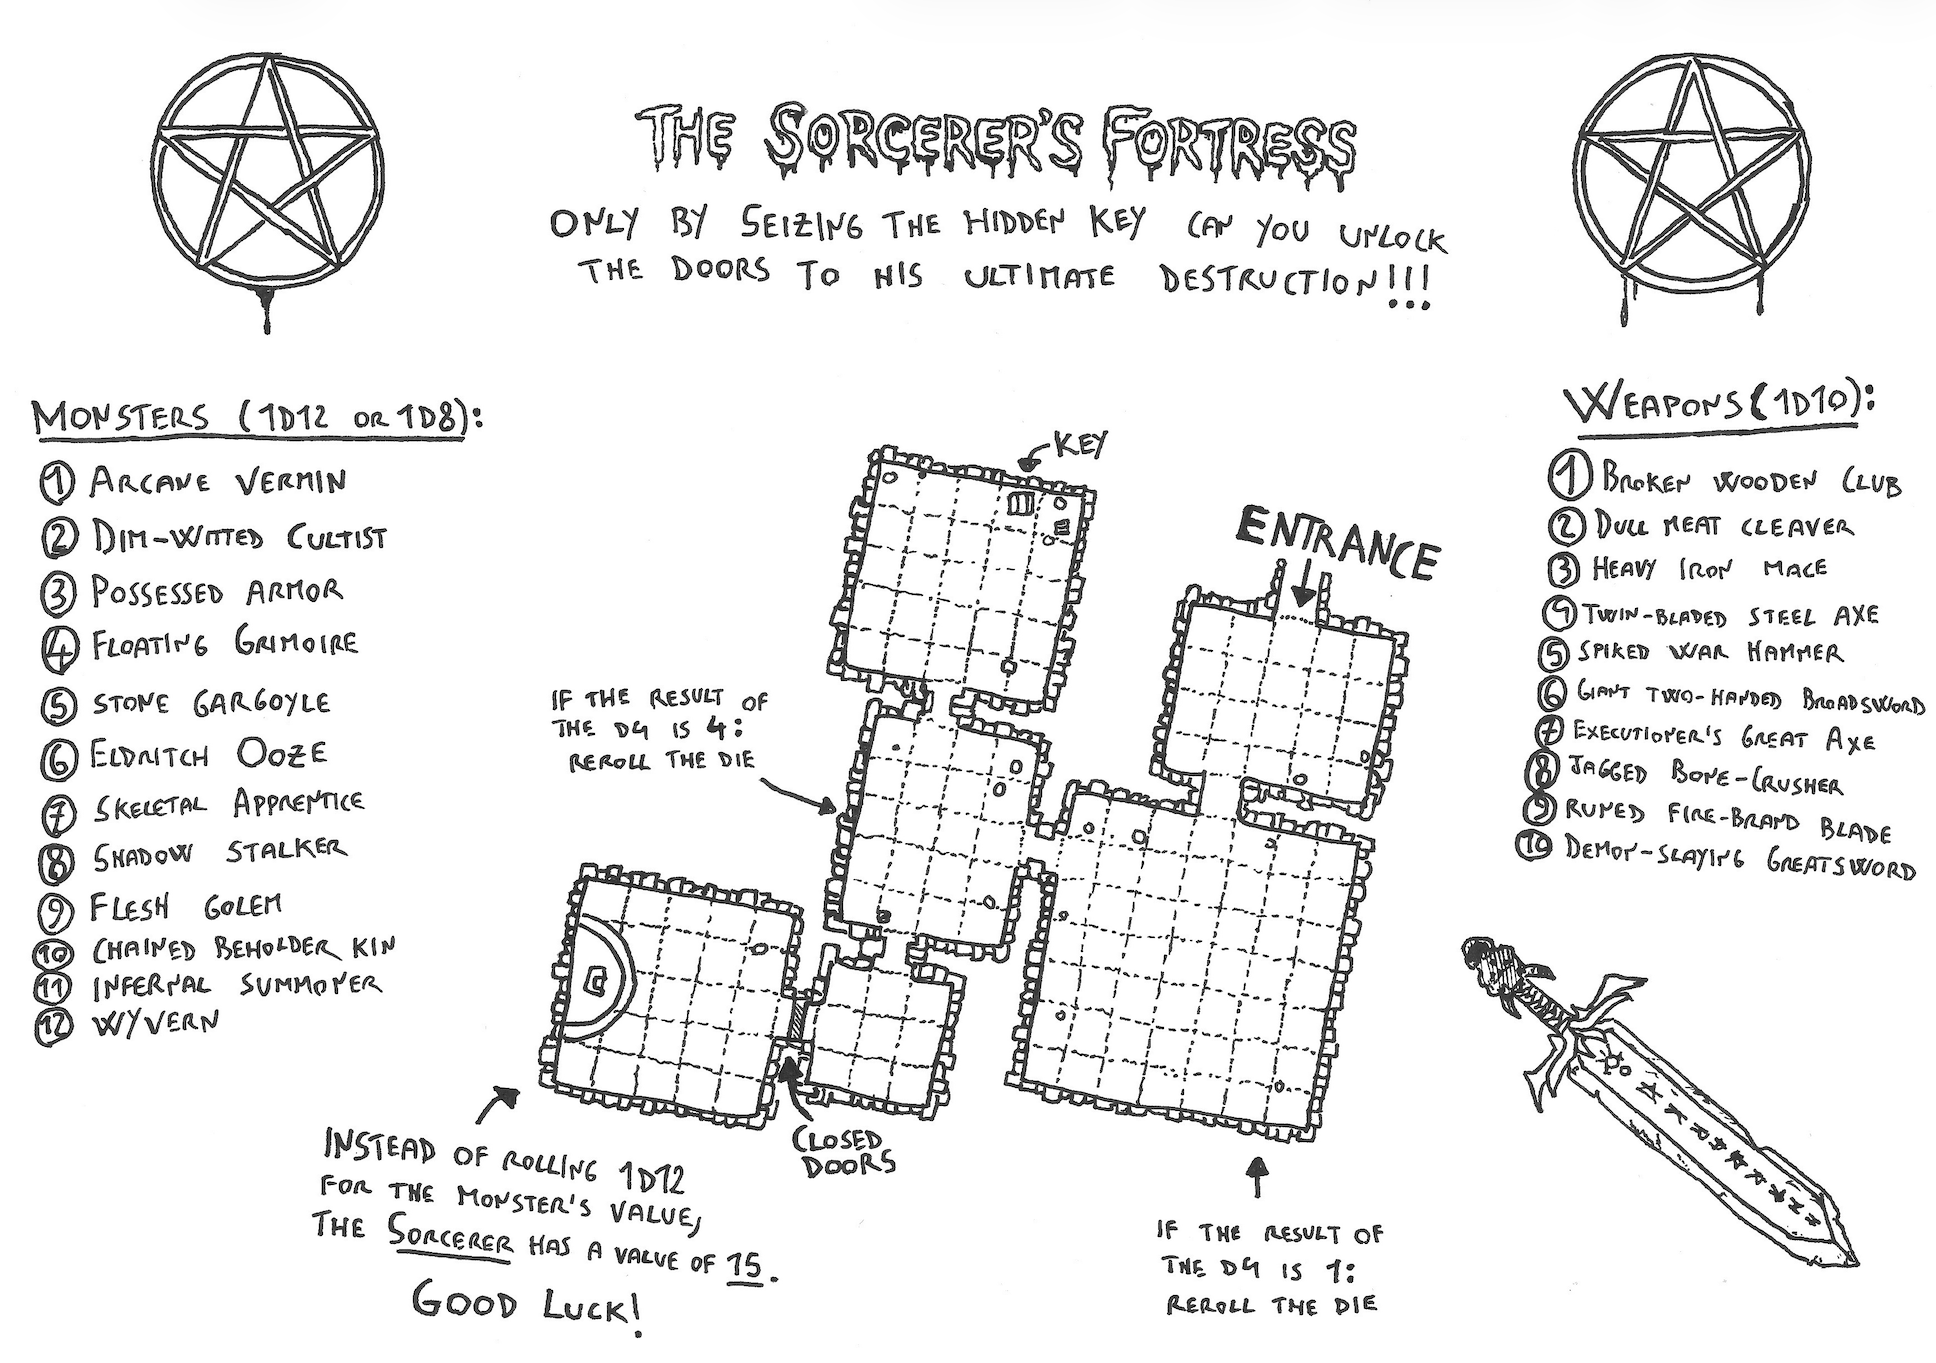 THE SORCERER'S FORTRESS
ONLY BY SEIZING THE HIDDEN KEY CAN YOU UNLOCK
THE DOORS TO HIS ULTIMATE DESTRUCTION!!!
MONSTERS (1D12 OR 1D8):
1 ARCANE VERMIN
2 DIM-WITTED CULTIST
3 POSSESSED ARMOR
4 FLOATING GRIMOIRE
5 STONE GARGOYLE
6 ELDRITCH OOZE
7 SKELETAL APPRENTICE
8 SHADOW STALKER
9 FLESH GOLEM
10 CHAINED BEHOLDER KIN
11 INFERNAL SUMMONER
12 WYVERN
KEY
ENTRANCE
IF THE RESULT OF
THE D4 IS 4:
REROLL THE DIE
CLOSED
DOORS
INSTEAD OF ROLLING 1D12
FOR THE MONSTER'S VALUE,
THE SORCERER HAS A VALUE OF 15.
GOOD LUCK!
IF THE RESULT OF
THE D4 IS 1:
REROLL THE DIE
WEAPONS (1D10):
1 BROKEN WOODEN CLUB
2 DULL MEAT CLEAVER
3 HEAVY IRON MACE
4 TWIN-BLADED STEEL AXE
5 SPIKED WAR HAMMER
6 GIANT TWO-HANDED BROADSWORD
7 EXECUTIONER'S GREAT AXE
8 JAGGED BONE-CRUSHER
9 RUNED FIRE-BRAND BLADE
10 DEMON-SLAYING GREATSWORD